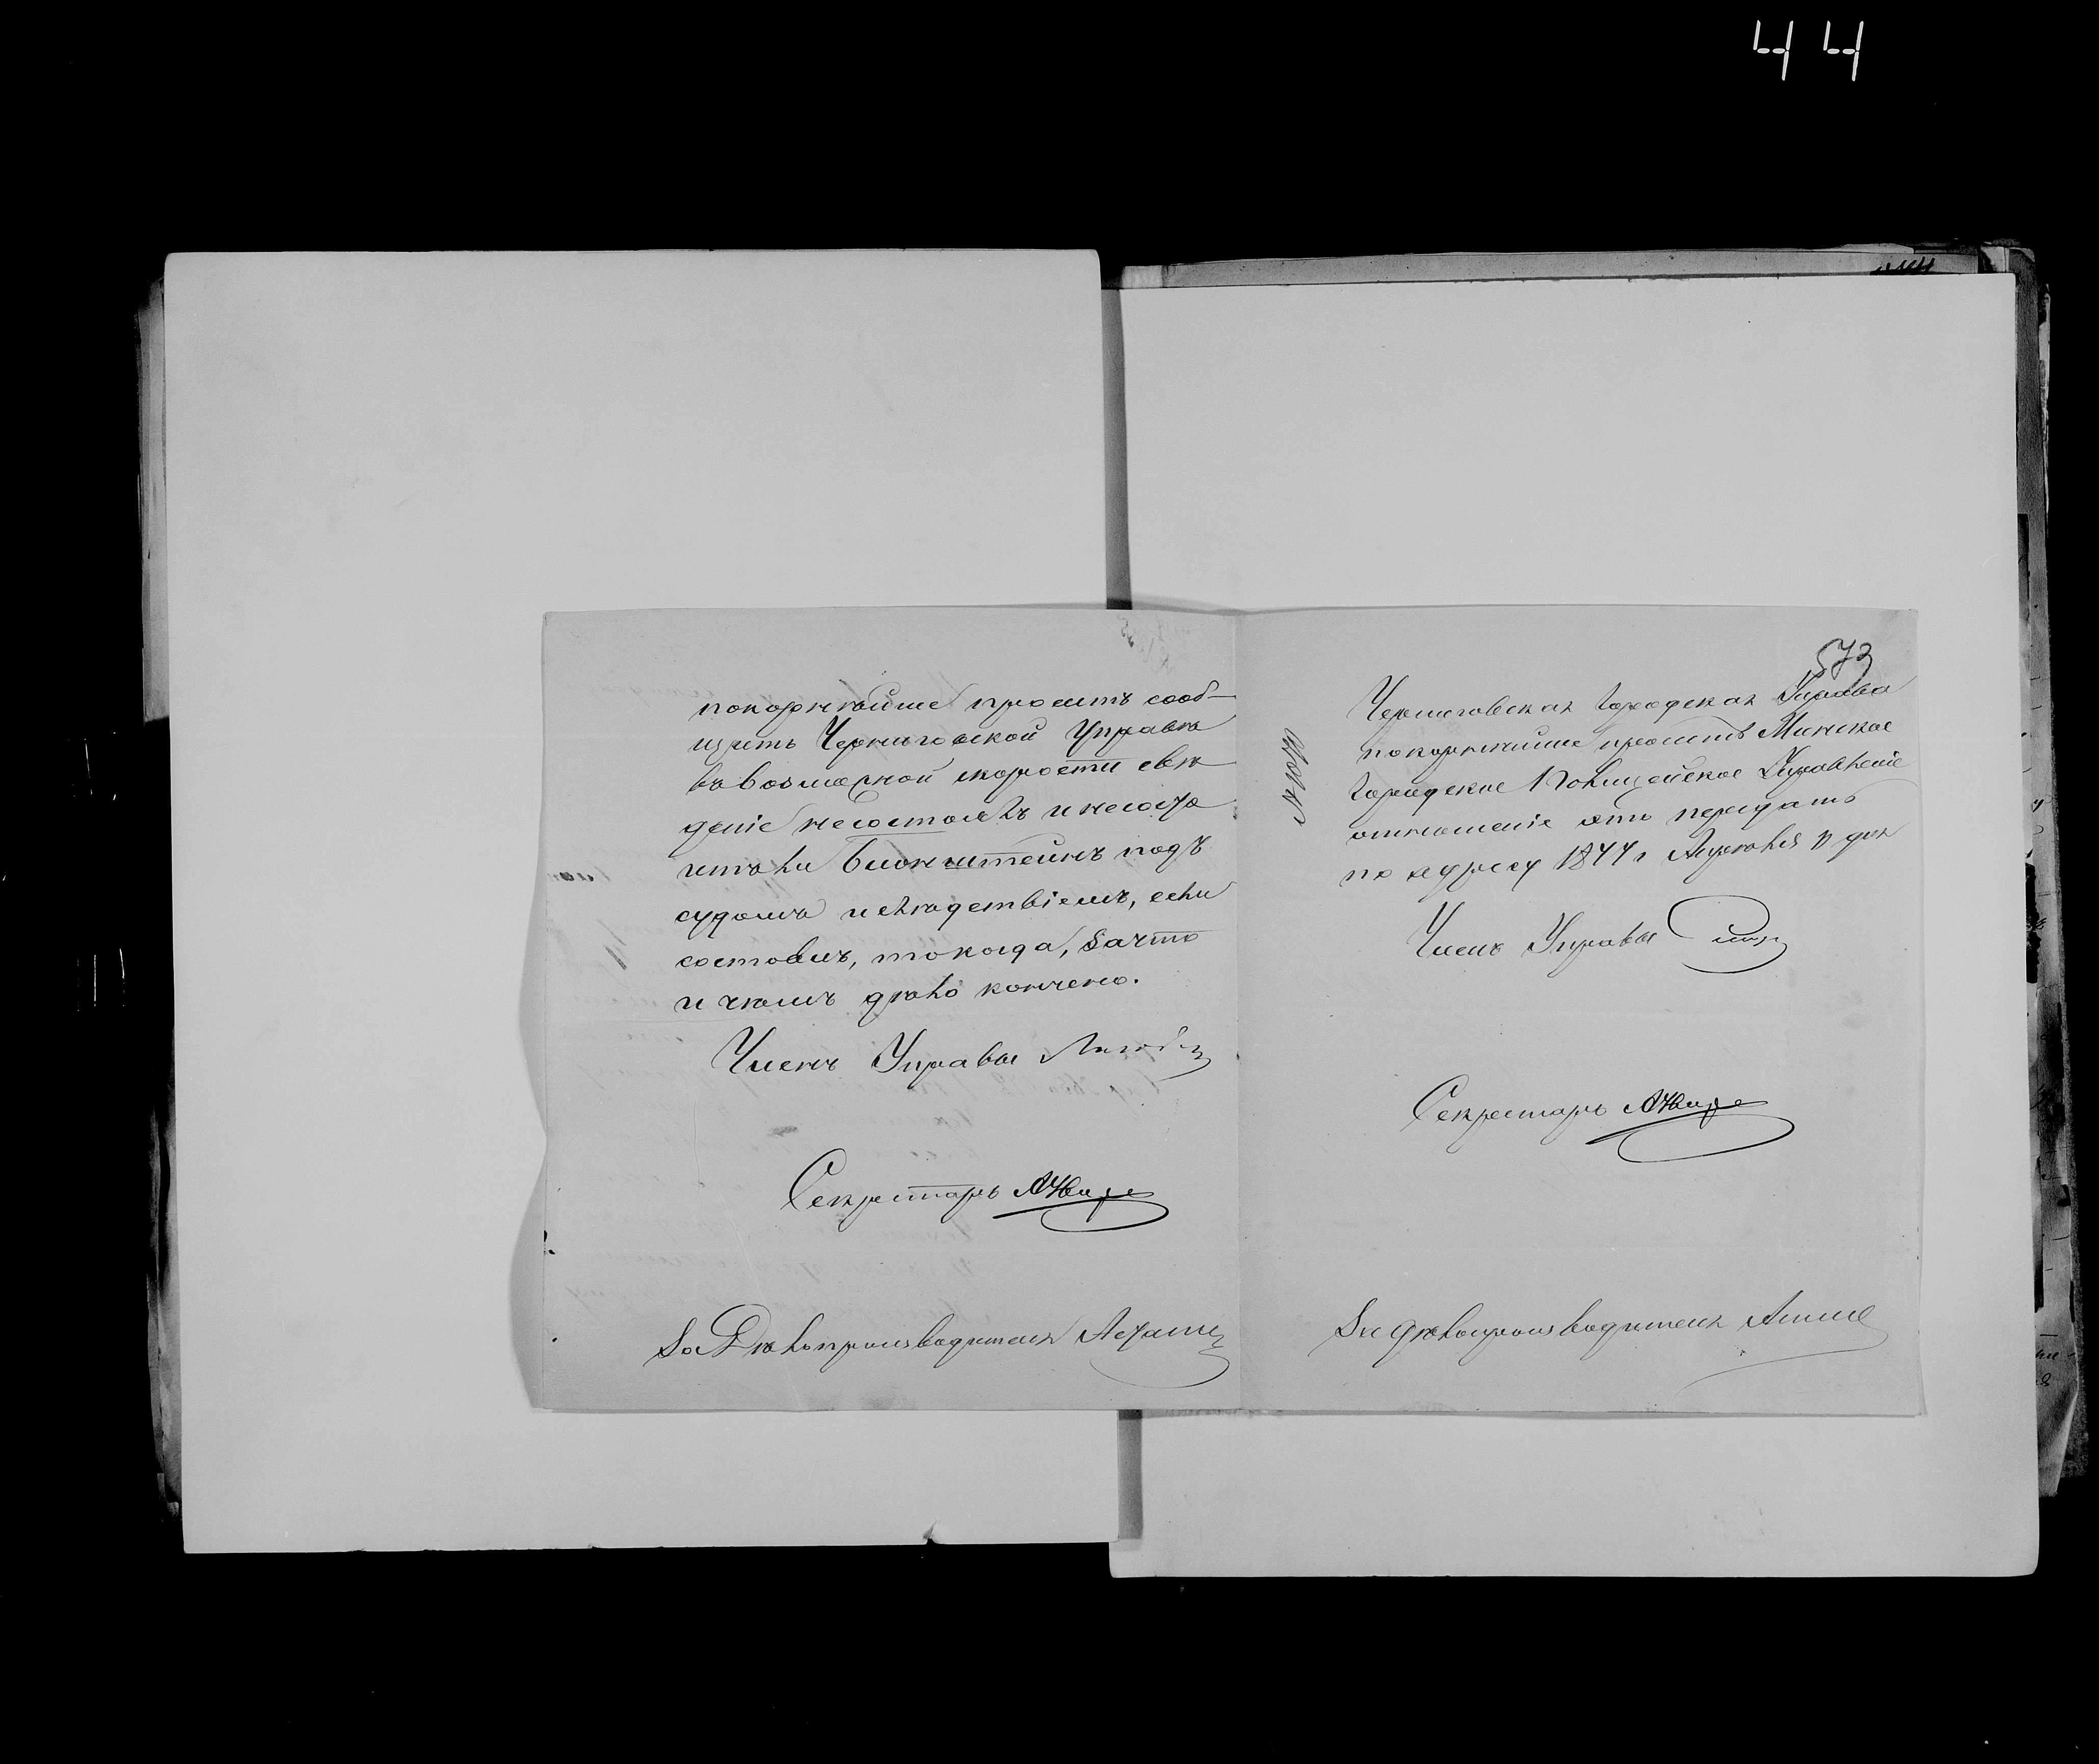 44
покорнѣйше проситъ сооб-
щить Черниговской Управѣ
въ возможной скорости свѣ
денiе несостоялъ и несосто
итъ ли Блюмштейнъ подъ
судомъ и слѣдствiемъ, если
состоялъ, то когда, за что
и чѣмъ дѣло кончено.
Членъ Управы
Секретарь
За Дѣлопроизводителя
573
Черниговская Городская Управа
покорнѣйше проситъ Минское
Городское Полицейское Управленiе
отношенiе это передать
по адресу 1877 г Апрѣля дня
Членъ Управы
Секретарь
За дѣлопроизводителя